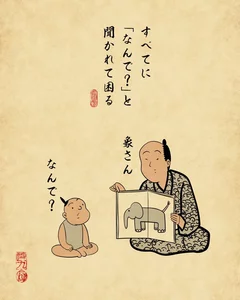 すべてに
「なんで？」と
聞かれて困る
象さん
なんで？